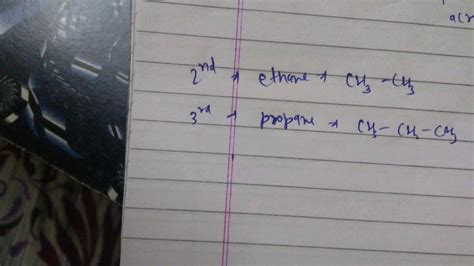 a(r
2nd → ethane → CH3 - CH3
3rd → propane → CH - CH - CH3